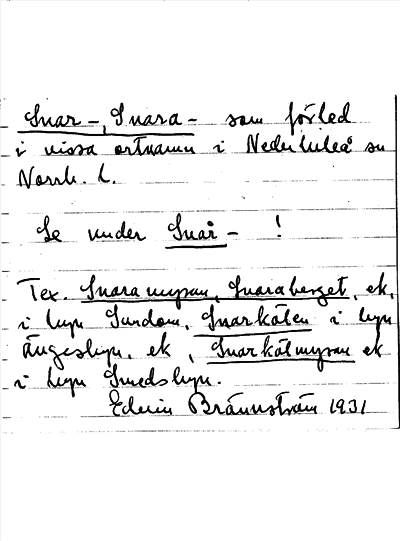 Snar-, Snara- som förled
i vissa ortnamn i Nederluleå sn
Norrb. l.
Se under Snår- !
Tex. Snaramyran, Snaraberget, ek,
i byn Sundom, Snarkålen i byn
Ängesbyn, ek, Snarkålmyran ek
i byn Smedsbyn.
Edvin Brännström 1931